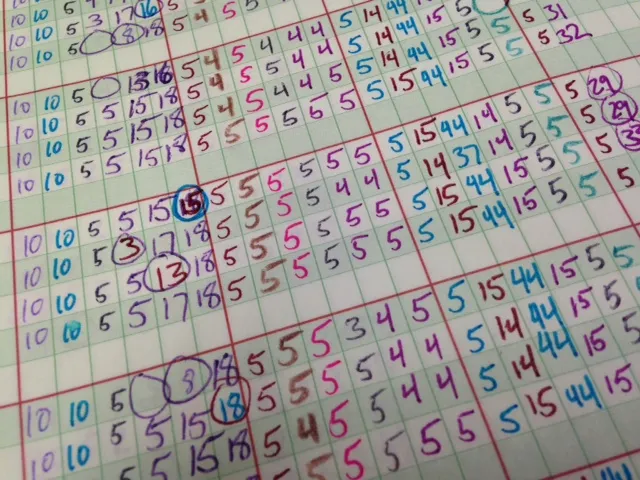 10 10 5 3 17 16 5 4 5
10 10 5 8 18 5 4 5 5
10 10 5 13 18 5 4 5 4 4 4 5 14 44
10 10 5 5 15 18 5 4 5 5 4 4 5 14 44 15 5
10 10 5 5 15 18 5 4 5 4 4 5 5 14 44 15 5 5 5 5 31
10 10 5 5 15 18 5 5 5 5 5 5 5 15 44 15 5 5 5 32
10 10 5 5 15 15 5 5 5 5 5 5 5 15 44 14 5 5 5 29
10 10 5 3 17 18 5 5 5 5 4 4 5 14 37 14 5 5 5 29
10 10 5 5 13 18 5 5 5 5 5 5 5 15 44 15 5 5 5
10 10 5 5 17 18 5 5 5 5 5 5 5 15 44 15 5 5 5
10 10 5 8 18 5 5 5 3 4 5 5 15 44 15 5 5
10 10 5 5 15 18 5 5 5 5 4 4 5 14 44 15 5
5 15 18 5 4 5 5 4 4 5 14 44 15 5
5 5 5 5 5 5 15 44 15